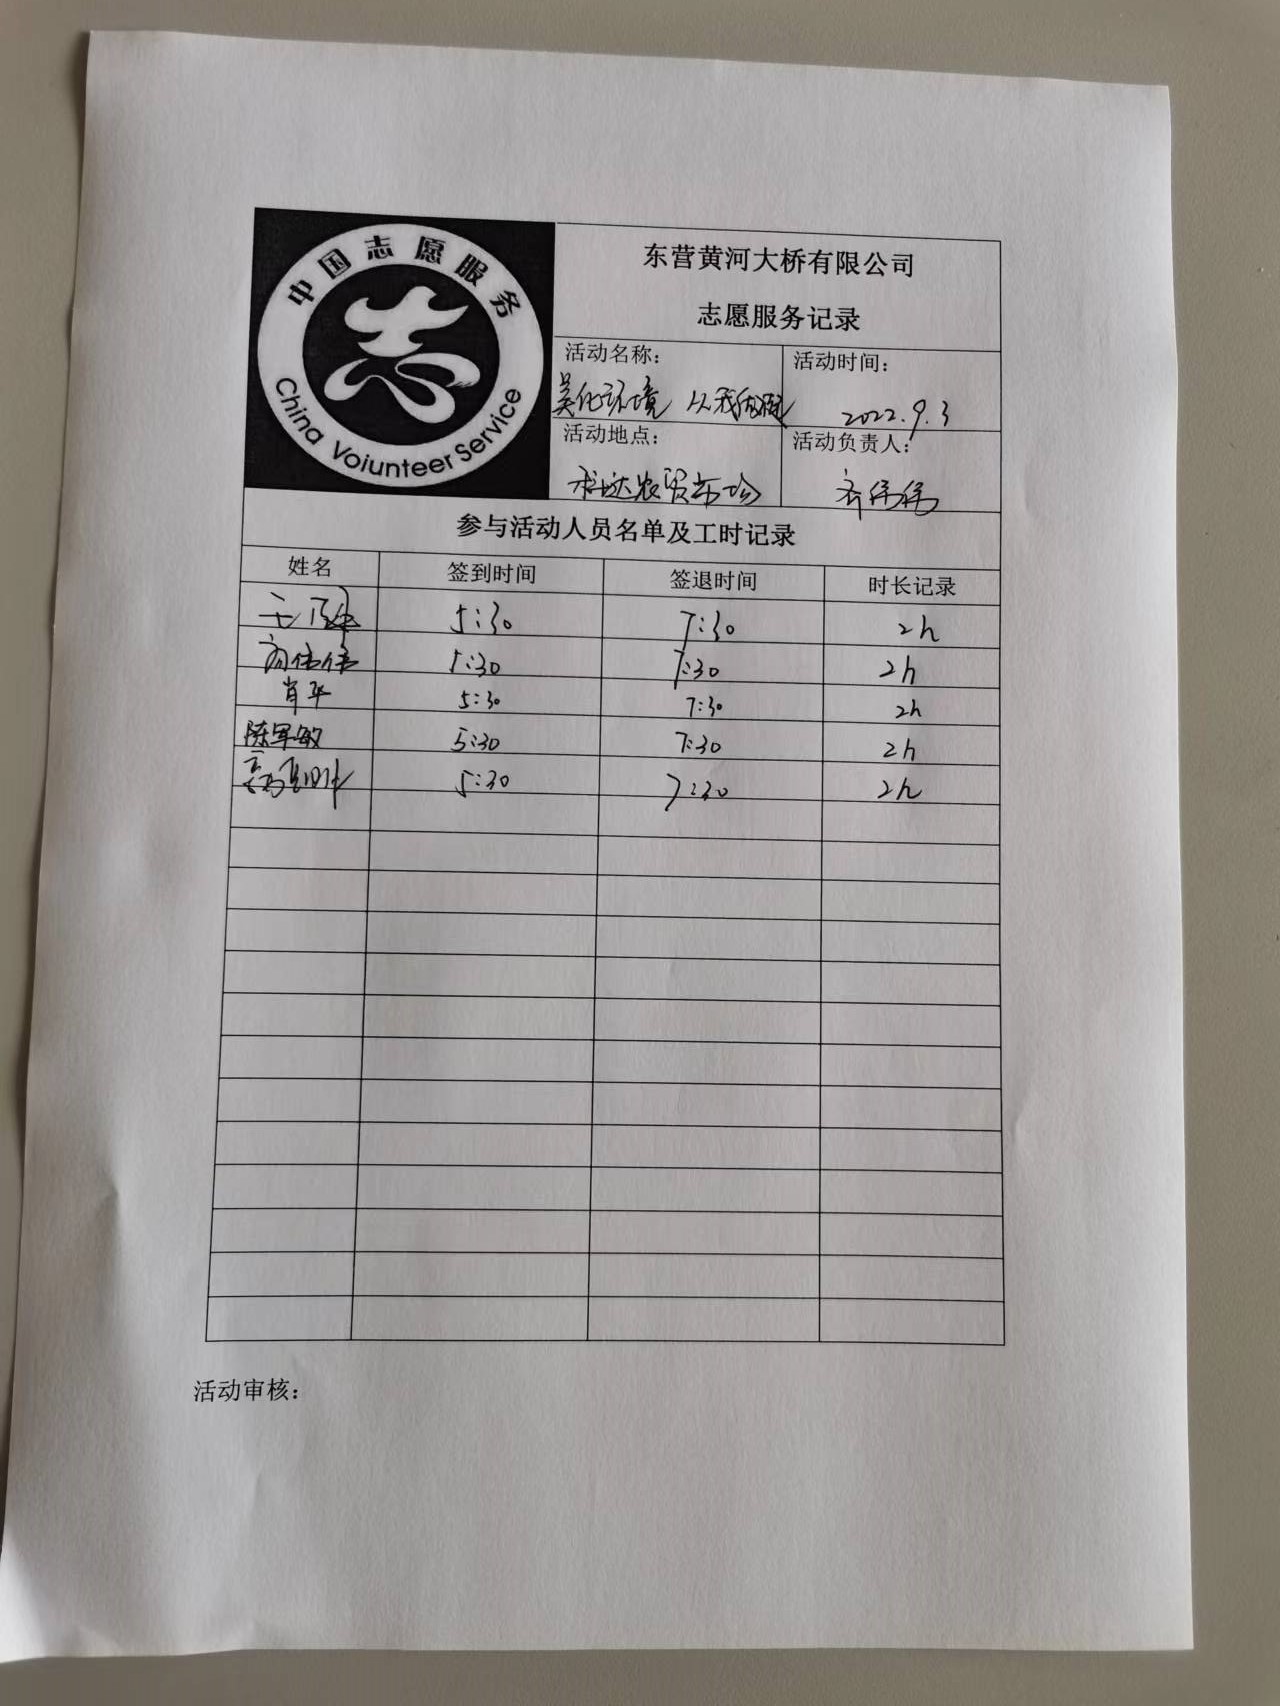 中国志愿服务
China Voiunteer Service
东营黄河大桥有限公司
志愿服务记录
活动名称: 活动时间:
美化环境 从我做起 2022.9.3
活动地点: 活动负责人:
农贸市场 齐伟伟
参与活动人员名单及工时记录
姓名 签到时间 签退时间 时长记录
王 5:30 7:30 2h
齐伟伟 5:30 7:30 2h
肖平 5:30 7:30 2h
陈军敏 5:30 7:30 2h
高 5:30 7:30 2h
活动审核: